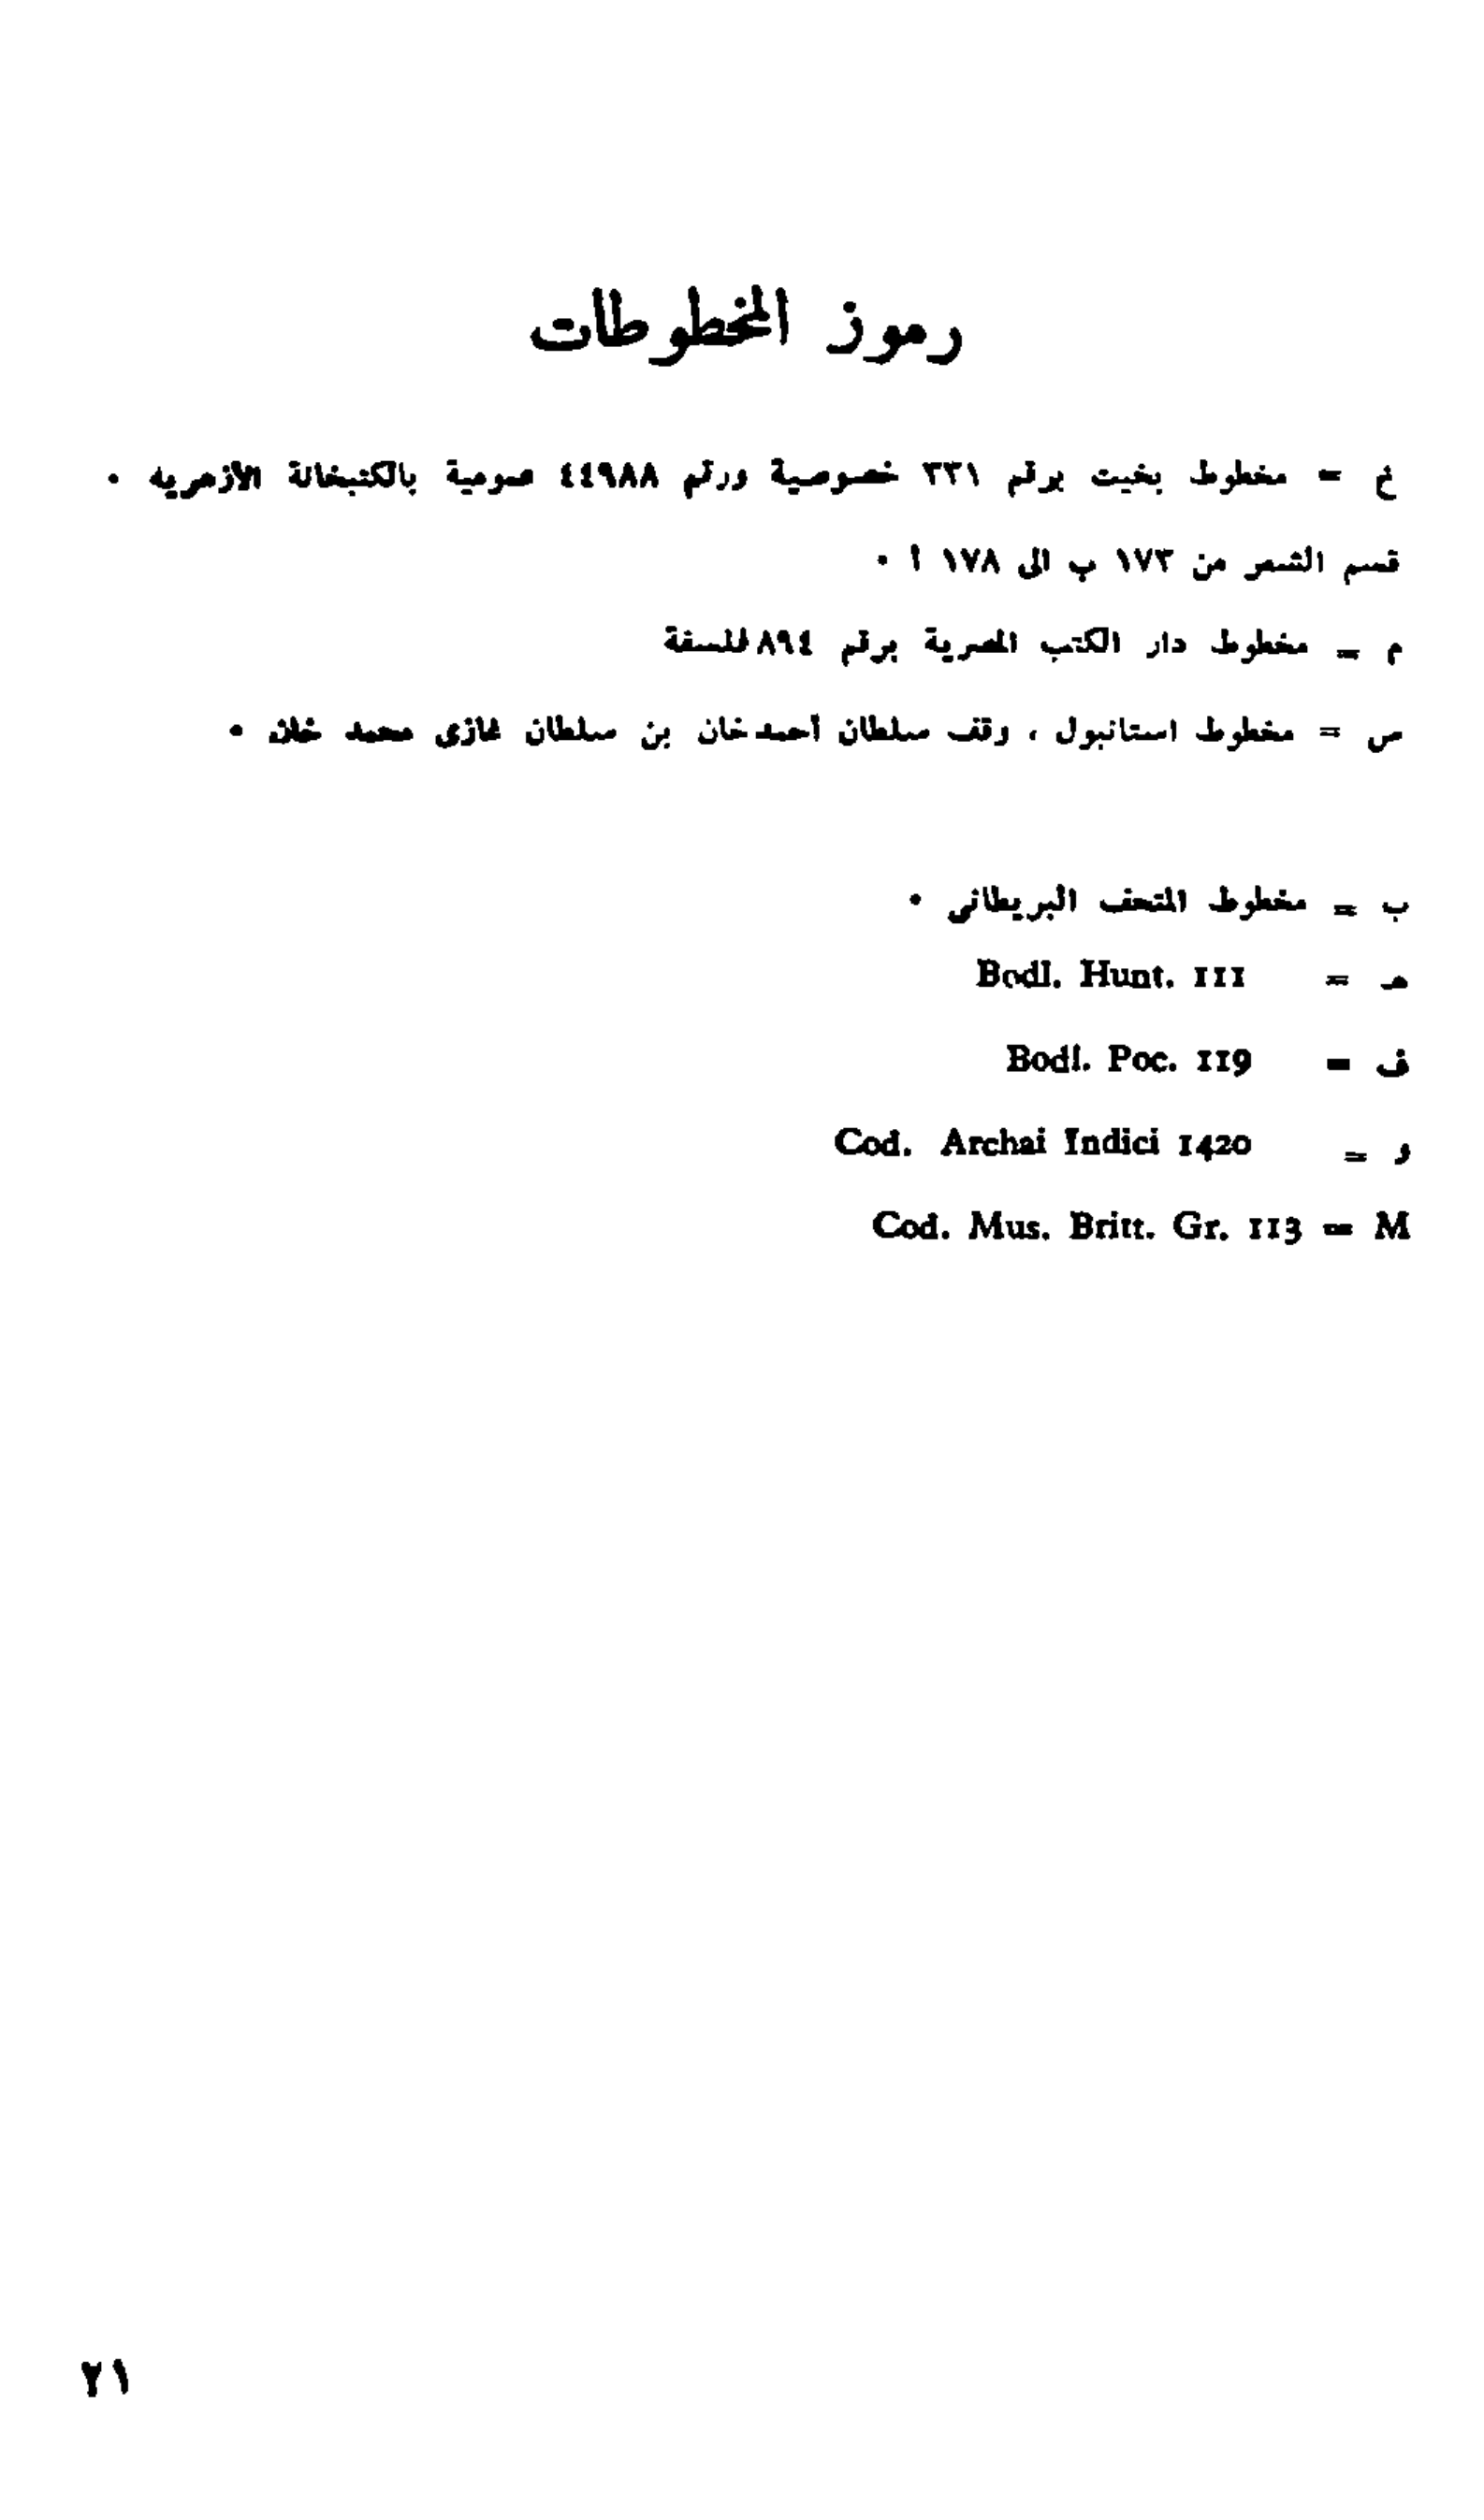 رموز المخطوطات
خ = مخطوط بخيت برقم ٣٣١ خصوصية ورقم ٤٤٩٨٨ عمومية بالكتبخانة الأزهرية .
قسم الشعر من ١٧٣ ب الى ١٧٨ ا .
م = مخطوط دار الكتب المصرية برقم ٨٩٤ فلسفة
س = مخطوط استانبول ، وقف سلطان أحمد خان بن سلطان غازى محمد خان .
ب = مخطوط المتحف البريطانى .
هـ = Bodl. Hunt. 111
ف = Bodl. Poc. 119
و = Cod. Archei Indici 1420
Cod. Mus. Brit. Gr. 113 = M
٧١